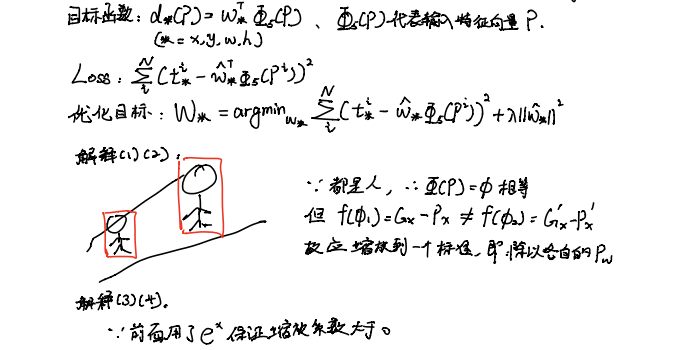 目标函数：d*(P) = w*ᵀ Φ₅(P)、Φ₅(P)代表输入特征向量P.
(* = x,y,w,h)
Loss: Σᵢᴺ (t*ⁱ - ŵ*ᵀ Φ₅(Pⁱ))²
优化目标：W* = argmin_w* Σᵢᴺ (t*ⁱ - ŵ* Φ₅(Pⁱ))² + λ||ŵ*||²
解释(1)(2)：
∵都是人，∴Φ(P)=ϕ相等
但 f(ϕ₁)=Gx-Px ≠ f(ϕ₂)=G'x-P'x
故应缩放到一个标准，即除以各自的Pw
解释(3)(4).
∵前面用了eˣ保证缩放系数大于0